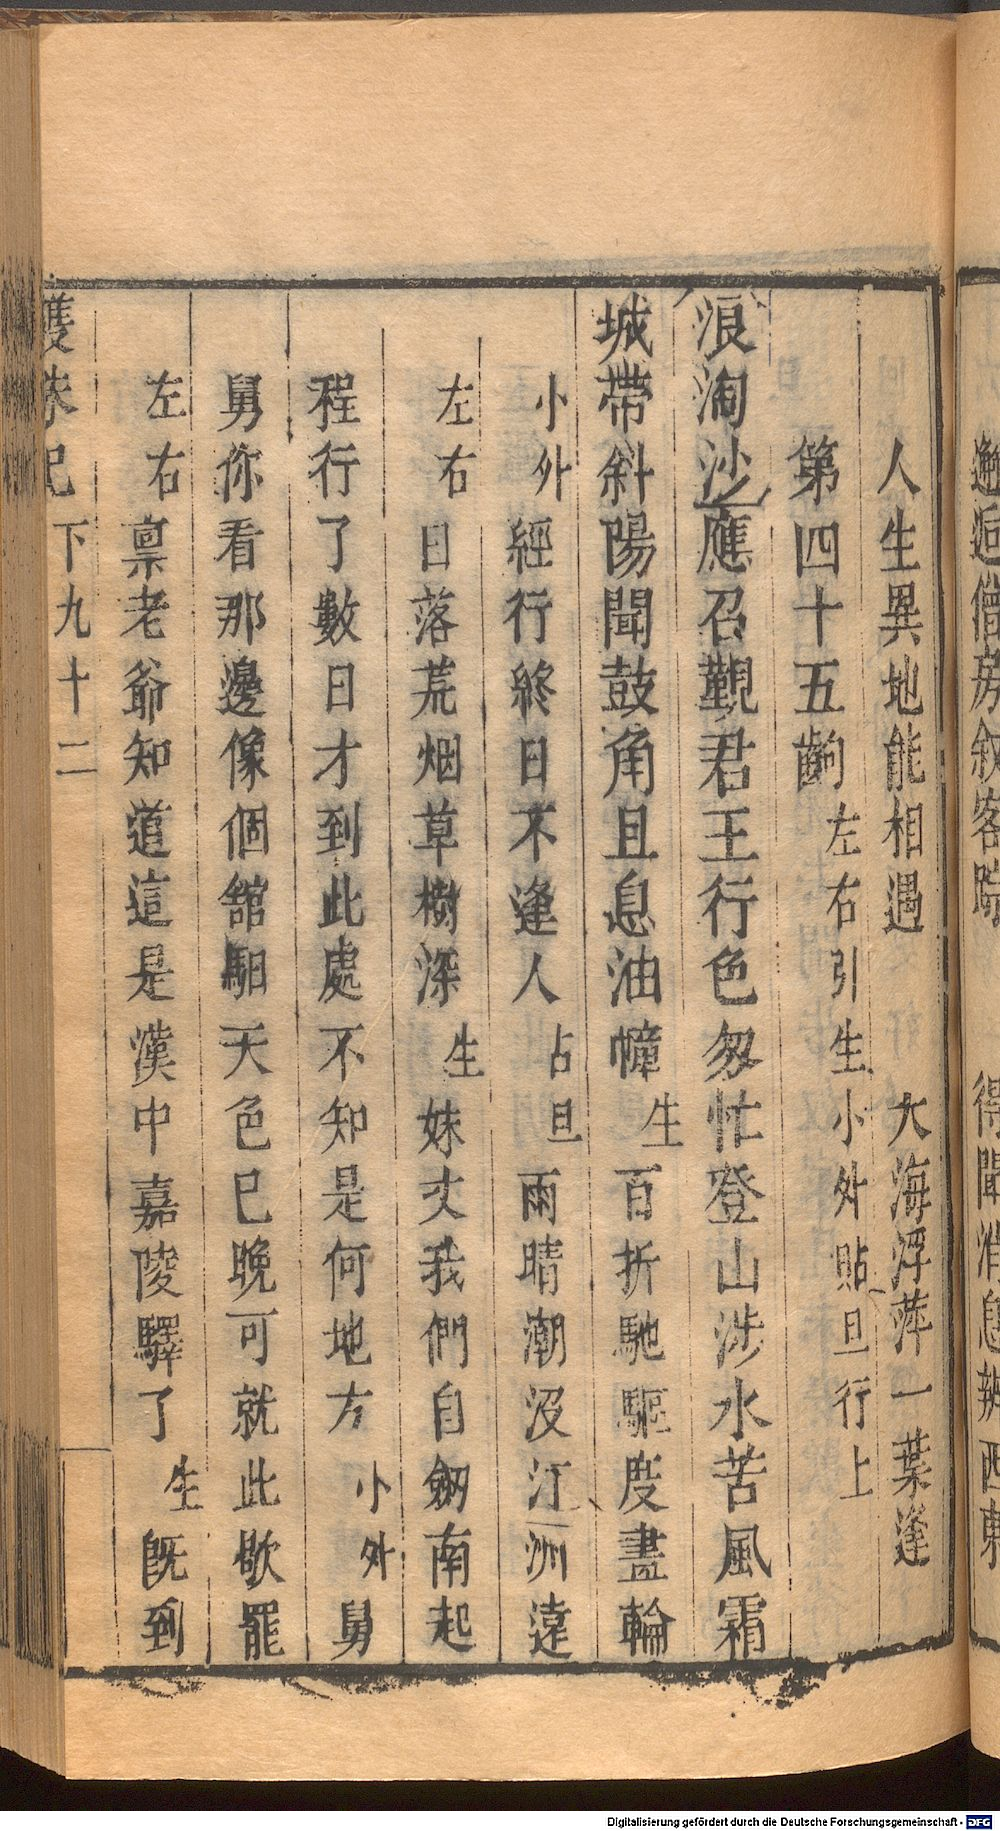 邂逅僧房敘客踪　得聞消息執西東
人生異地能相遇　大海浮萍一葉逢
第四十五齣　左右引生小外貼旦行上
浪淘沙應召覲君王行色匆忙登山涉水苦風霜
城帶斜陽聞鼓角且息油幢　生　百折馳驅度盡輪
小外　經行終日不逢人　占旦　雨晴潮沒汀洲遠
左右　日落荒烟草樹深　生　妹丈我們自劒南起
程行了數日才到此處不知是何地方　小外　舅
舅你看那邊像個舘馹天色已晚可就此歇罷
左右　禀老爺知道這是漢中嘉陵驛了　生　旣到
雙珠記　下九十二
Digitalisierung gefördert durch die Deutsche Forschungsgemeinschaft - DFG